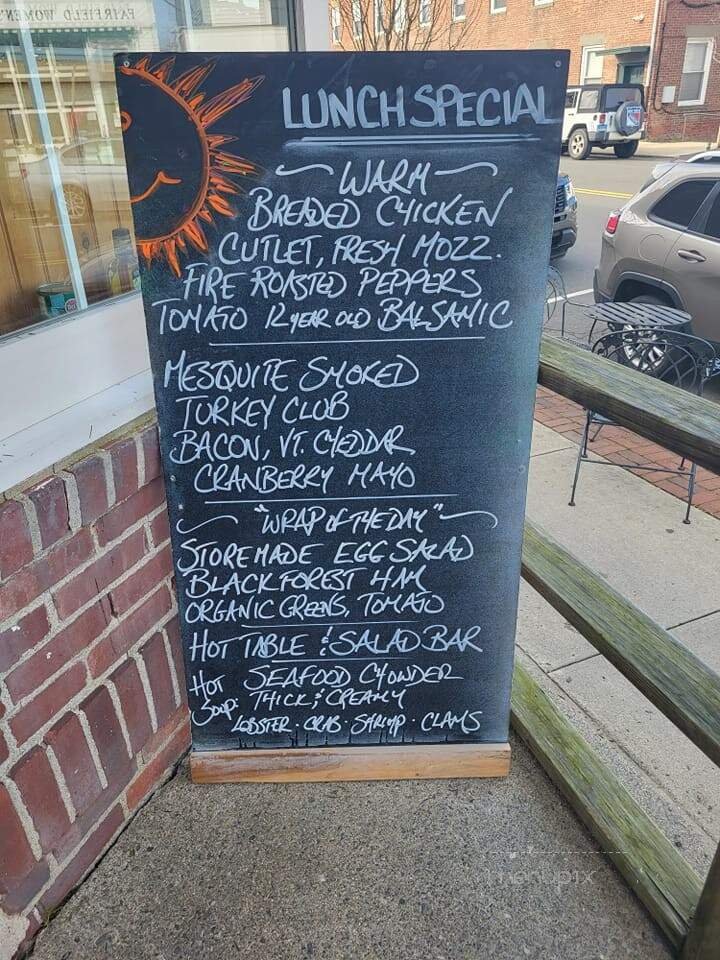 FAIRFIELD WOMEN'S
LUNCH SPECIAL
WARM
BREADED CHICKEN
CUTLET, FRESH MOZZ.
FIRE ROASTED PEPPERS
TOMATO 12 YEAR OLD BALSAMIC
MESQUITE SMOKED
TURKEY CLUB
BACON, VT. CHEDDAR
CRANBERRY MAYO
"WRAP OF THE DAY"
STOREMADE EGG SALAD
BLACK FOREST HAM
ORGANIC GREENS, TOMATO
HOT TABLE & SALAD BAR
HOT SOUP: SEAFOOD CHOWDER
THICK & CREAMY
LOBSTER · CRAB · SHRIMP · CLAMS
menupix